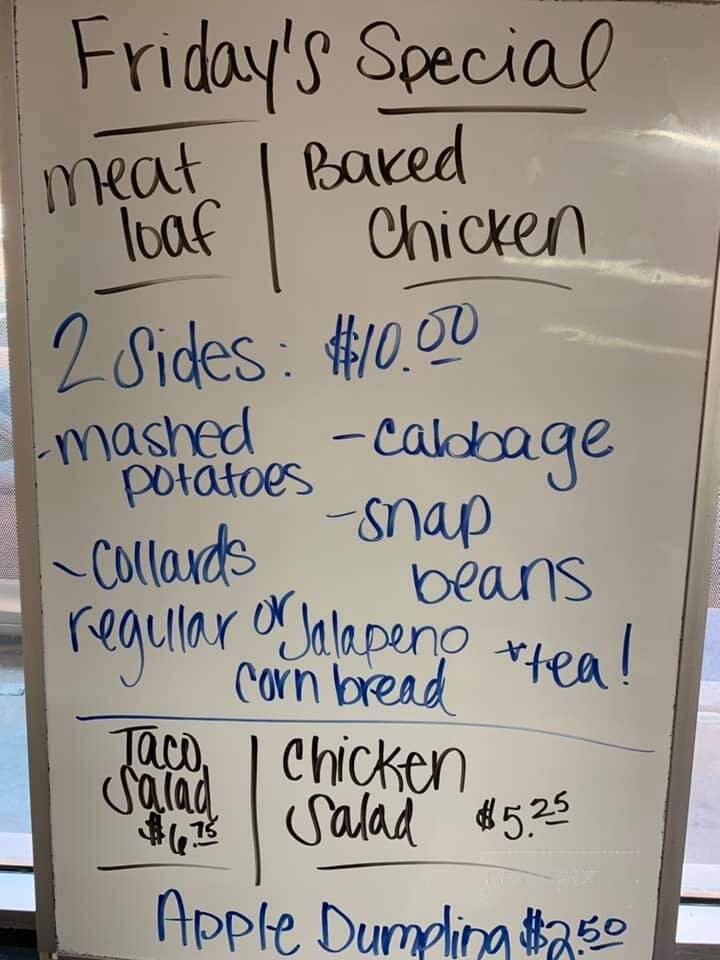 Friday's Special
meat | Baked
loaf | Chicken
2 Sides: $10.00
-mashed -cabbage
potatoes
-snap
-Collards beans
regular or Jalapeno + tea!
corn bread
Taco | Chicken
Salad | Salad $5.25
$6.75
Apple Dumpling $2.50